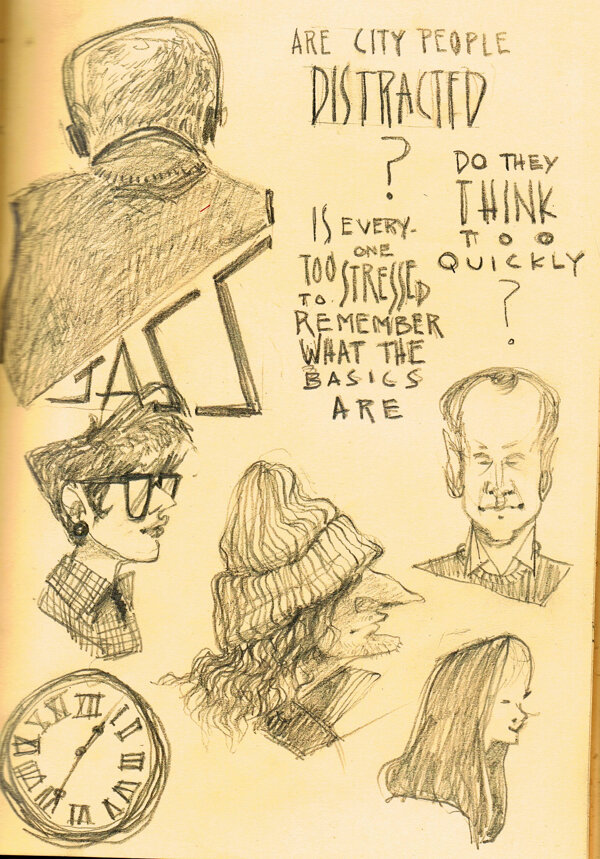 ARE CITY PEOPLE
DISTRACTED
?
DO THEY
THINK
TOO
QUICKLY
?
IS EVERY-
ONE
TOO STRESSED
TO
REMEMBER
WHAT THE
BASICS
ARE
XII
I
II
III
IX
X
XI